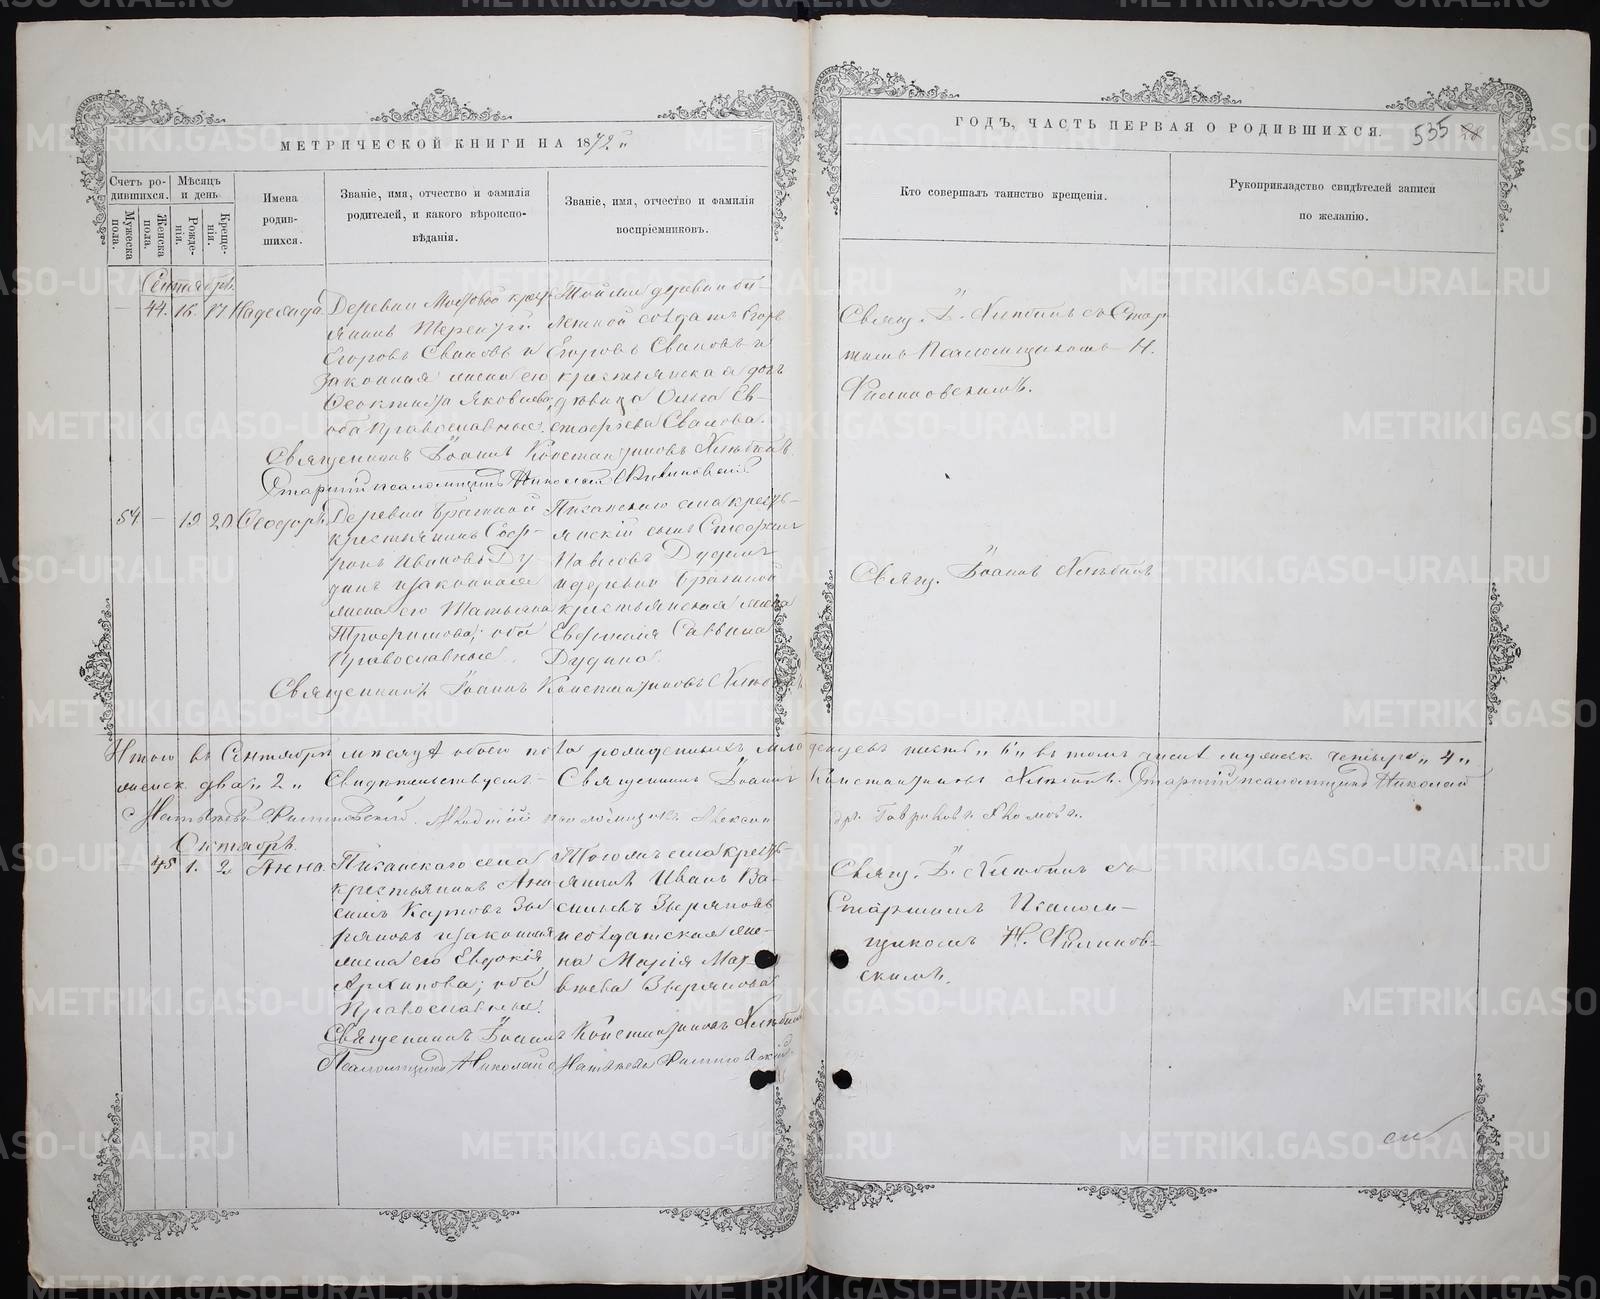 МЕТРИЧЕСКОЙ КНИГИ НА 1872 г.
ГОДЪ, ЧАСТЬ ПЕРВАЯ О РОДИВШИХСЯ.
535
Счетъ родившихся.
Мужеска пола.
Женска пола.
Мѣсяцъ и день.
Рожденія.
Крещенія.
Имена родившихся.
Званіе, имя, отчество и фамилія
родителей, и какого вѣроиспо-
вѣданія.
Званіе, имя, отчество и фамилія
воспріемниковъ.
Кто совершалъ таинство крещенія.
Рукоприкладство свидѣтелей записи
по желанію.
Сентябрь.
44. 16. 17 Надежда
Деревни Мостовой кресть-
янинъ Терентій
Егоровъ Свановъ и
законная жена его
Феоктиста Яковлева,
оба православные.
Той же деревни
солдатъ Егоръ
Егоровъ Свановъ и
крестьянская дочь
дѣвица Ольга Ев-
стафіева Сванова.
Свящ. І. Хлѣбинъ съ Стар-
шимъ Псаломщикомъ Н.
Филиповскимъ.
Священникъ Іоаннъ Константиновъ Хлѣбинъ
Старшій псаломщикъ Николай Филиповскій
54 — 19. 20 Феодоръ
Деревни Бражной
крестьянинъ Соф-
ронъ Ивановъ Ду-
динъ и законная
жена его Татьяна
Трофимова; оба
Православные.
Писанскаго села кресть-
янскій сынъ Стефанъ
Павловъ Дудинъ
и деревни Бражной
крестьянская жена
Евфимія Саввина
Дудина.
Свящ. Іоаннъ Хлѣбинъ
Священникъ Іоаннъ Константиновъ Хлѣбинъ
Итого въ Сентябрѣ мѣсяцѣ обоего пола рожденныхъ младенцевъ шесть „6" въ томъ числѣ мужеск. четыре „4"
женск. два „2" Свидѣтельствуемъ Священникъ Іоаннъ Константиновъ Хлѣбинъ. Старшій псаломщикъ Николай
Филиповскій. Младшій псаломщикъ Алексан
дръ Гавриловъ
Октябрь.
45 1. 2 Анна
Писанскаго села
крестьянинъ Ана
Карповъ Зве
ряновъ и законная
жена его Евдокія
Архипова; оба
Православные.
Того же села кресть-
янинъ Иванъ Ва-
сильевъ Зверяновъ
и солдатская же-
на Марія Мат
вѣева Зверянова
Свящ. І. Хлѣбинъ съ
Старшимъ Псалом-
щикомъ Н. Филипов-
скимъ.
Священникъ Іоаннъ Константиновъ Хлѣбинъ
Псаломщикъ Николай Филиповскій
METRIKI.GASO-URAL.RU